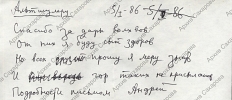 Альтшулеру 5/I-86 - 5/I-86
Спасибо за дары волхвов
От них я буду сыт здоров
Но всех прошу я меру знать
И гор таких не присылать
Подробности письмом Андрей